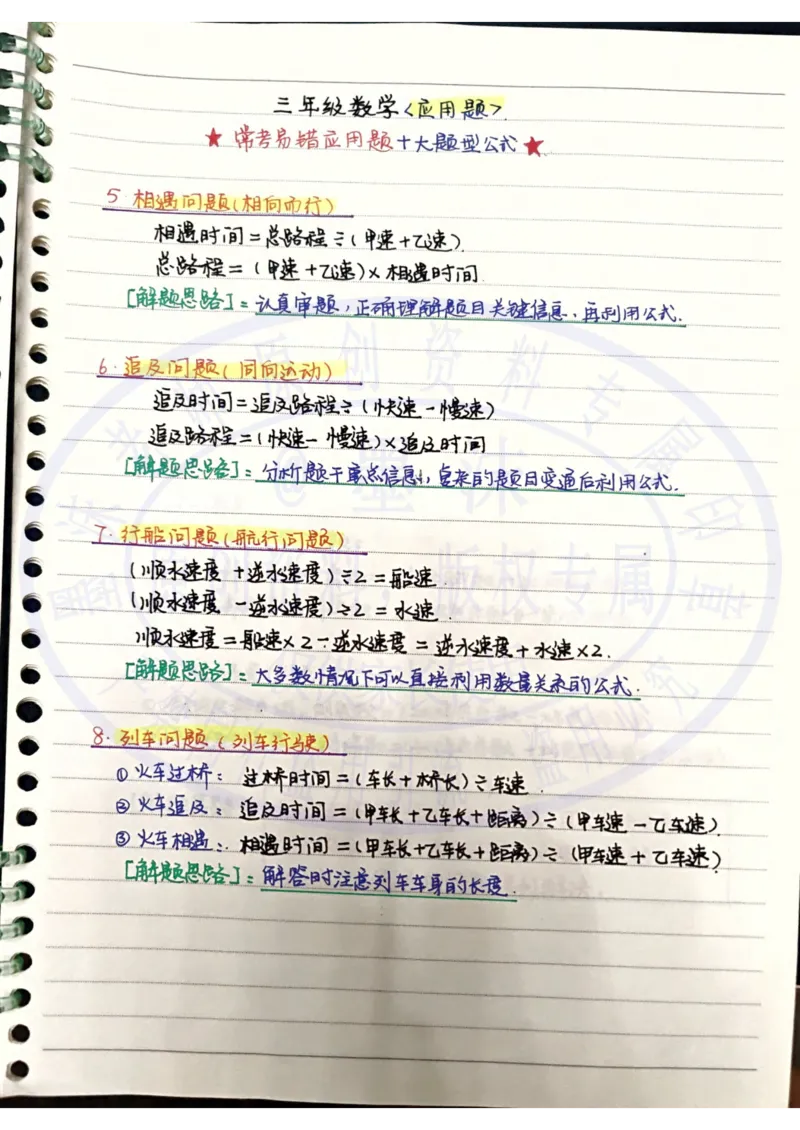 三年级数学<应用题>.
★ 常考易错应用题十大题型公式 ★
5.相遇问题(相向而行)
相遇时间=总路程÷(甲速+乙速).
总路程=(甲速+乙速)×相遇时间
[解题思路]:认真审题,正确理解题目关键信息,再利用公式.
6.追及问题(同向运动)
追及时间=追及路程÷(快速-慢速)
追及路程=(快速-慢速)×追及时间
[解题思路]:分析题干重点信息,复杂的题目变通后利用公式.
7.行船问题(航行问题)
(顺水速度+逆水速度)÷2=船速.
(顺水速度-逆水速度)÷2=水速.
顺水速度=船速×2-逆水速度=逆水速度+水速×2.
[解题思路]:大多数情况下可以直接利用数量关系的公式.
8.列车问题(列车行驶)
①火车过桥:过桥时间=(车长+桥长)÷车速.
②火车追及:追及时间=(甲车长+乙车长+距离)÷(甲车速-乙车速).
③火车相遇:相遇时间=(甲车长+乙车长+距离)÷(甲车速+乙车速)
[解题思路]:解答时注意列车车身的长度.
原创资料专属印章
版权专属